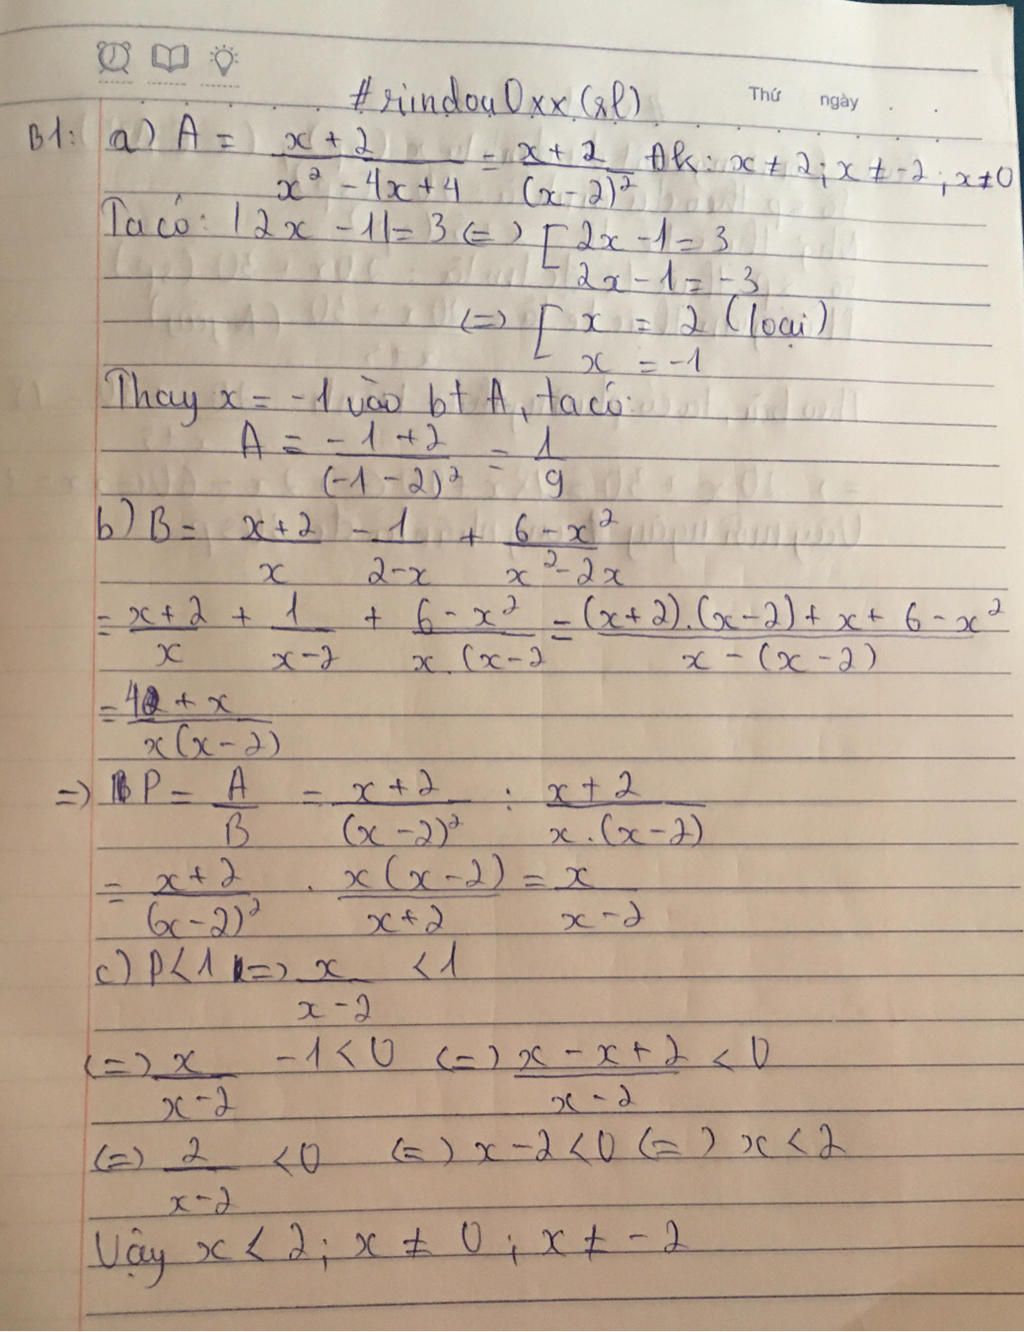 #rindou0xx(rl)
Thứ ngày . .
B1: a) A = \frac{x+2}{x² - 4x + 4} = \frac{x+2}{(x-2)²} Đk: x ≠ 2; x ≠ -2; x ≠ 0
Ta có: |2x - 1| = 3 (=) [ 2x - 1 = 3
2x - 1 = -3
(=) [ x = 2 (loại)
x = -1
Thay x = -1 vào bt A, ta có:
A = \frac{-1+2}{(-1-2)²} = \frac{1}{9}
b) B = \frac{x+2}{x} - \frac{1}{2-x} + \frac{6-x²}{x²-2x}
= \frac{x+2}{x} + \frac{1}{x-2} + \frac{6-x²}{x.(x-2} = \frac{(x+2).(x-2)+x+6-x²}{x-(x-2)}
= \frac{2+x}{x(x-2)}
=) P = \frac{A}{B} = \frac{x+2}{(x-2)²} : \frac{x+2}{x.(x-2)}
= \frac{x+2}{(x-2)²} . \frac{x(x-2)}{x+2} = \frac{x}{x-2}
c) P < 1 (=) \frac{x}{x-2} < 1
(=) \frac{x}{x-2} - 1 < 0 (=) \frac{x-x+2}{x-2} < 0
(=) \frac{2}{x-2} < 0 (=) x - 2 < 0 (=) x < 2
Vậy x < 2; x ≠ 0; x ≠ -2